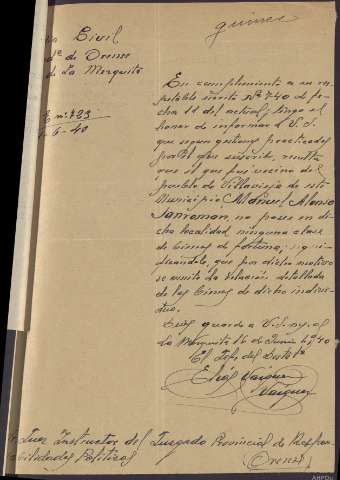 guiness
Civil
de Orense
de La Mezquita
E nº 723
6-40
En cumplimiento a su respetable escrito nº 740 de fecha 11 del actual, tengo el
honor de informar a V.S.
que según gestiones practicadas
por el que suscribe, resulta
que el que fué vecino del
pueblo de Villavieja de este
Municipio, Manuel Alonso
Sanroman, no posee en dicha localidad ninguna clase
de bienes de fortuna; significandole, que por dicho motivo
se omite la relación detallada
de los bienes de dicho individuo.
Dios guarde a V.S. m. a.
La Mezquita 16 de Junio 1940
El Jefe del Puesto
Elías Vazquez
Vazquez
Juez Instructor del Juzgado Provincial de Responsabilidades Politicas (Orense)
AHPOu